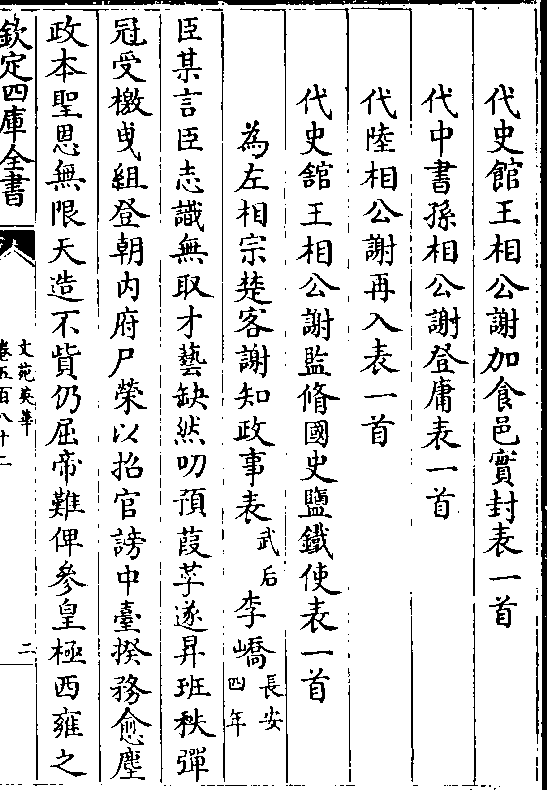 代史館王相公謝加食邑實封表一首
代中書孫相公謝登庸表一首
代陸相公謝再入表一首
代史舘王相公謝監脩國史鹽鐵使表一首
為左相宗楚客謝知政事表 武后 李嶠 長安四年
臣某言臣志識無取才藝缺然叨預葭莩遂昇班秩彈
冠受檄曵組登朝内府尸榮以招官謗中臺揆務愈塵
政本聖恩無限天造不貲仍屈帝難俾參皇極西雍之
欽定四庫全書
文苑英華
卷五百八十二
二